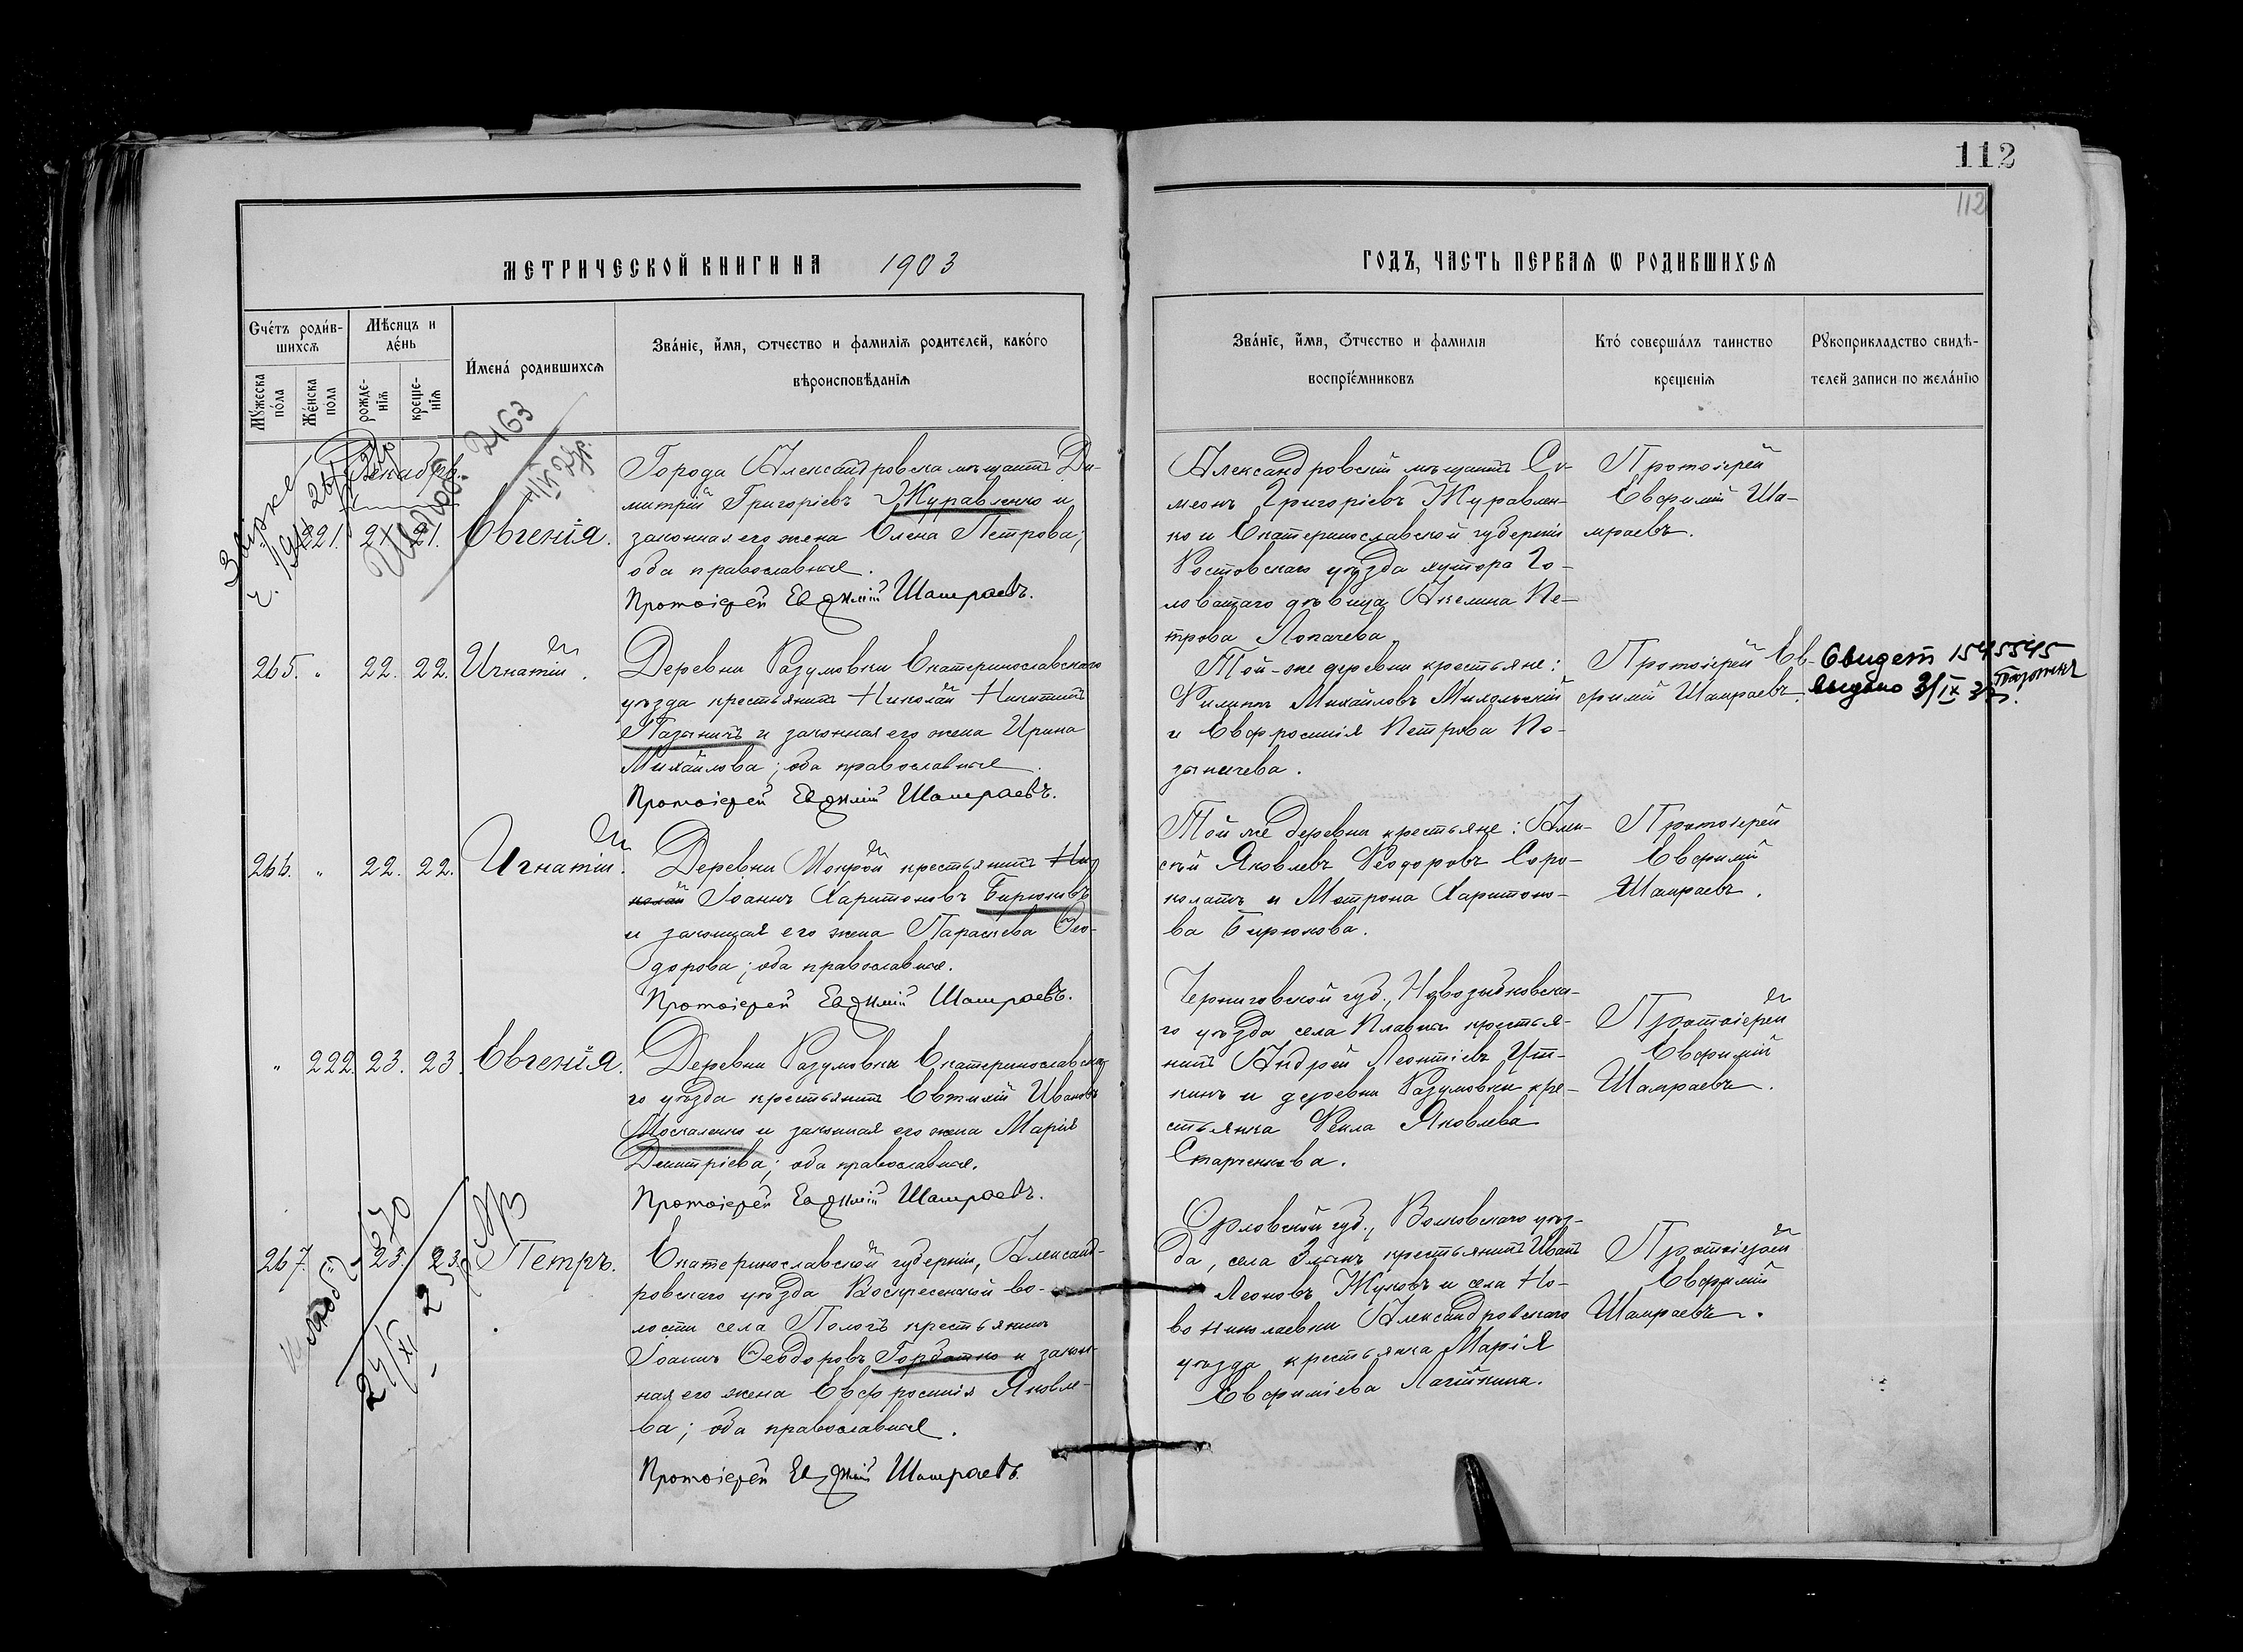 112
112
МЕТРИЧЕСКОЙ КНИГИ НА 1903
ГОДЪ, ЧАСТЬ ПЕРВАѦ Ѡ РОДИВШИХСѦ
Счетъ родив-
шихсѧ
Мѣсяцъ и
день
Имена родившихсѧ
Званіе, имя, отчество и фамилія родителей, какого
вѣроисповѣданіѧ
Мужеска
пола
Женска
пола
рожде-
ніѧ
креще-
ніѧ
Званіе, имя, отчество и фамилія
воспріемниковъ
Кто совершалъ таинство
крещеніѧ
Рукоприкладство свидѣ-
телей записи по желанію
Декабрь.
2163
221. 21. 21. Евгенія.
Города Александровска мѣщанинъ Ди-
митрій Григоріевъ Журавленко и
законная его жена Елена Петрова;
оба православные.
Протоіерей Евѳимій Шамраевъ.
Александровскій мѣщанинъ Си-
меонъ Григоріевъ Журавлен-
ко и Екатеринославской губерніи
Ростовскаго уѣзда хутора Го-
ловатаго дѣвица Акелина Пе-
трова Лопачева
Протоіерей
Евфимій Ша-
мраевъ.
265. " 22. 22. Игнатій.
Деревни Разумовки Екатеринославскаго
уѣзда крестьянинъ Николай Никитинъ
Позыничъ и законная его жена Ирина
Михайлова; оба православные.
Протоіерей Евѳимій Шамраевъ.
Той-же деревни крестьяне:
Филиппъ Михайловъ Михольскій
и Евфросинія Петрова По-
зыничева.
Протоіерей Ев-
фимій Шамраевъ.
Свидет 1545545
выдано 3/IX
266. " 22. 22. Игнатій.
Деревни Мокрой крестьянинъ Ни-
колай Іоаннъ Харитоновъ Бирюковъ
и законная его жена Параскева Ѳео-
дорова; оба православные.
Протоіерей Евѳимій Шамраевъ.
Той же деревни крестьяне: Але-
ксѣй Яковлевъ Ѳеодоровъ Соро-
колатъ и Матрона Харитоно-
ва Бирюкова.
Протоіерей
Евфимій
Шамраевъ.
" 222. 23. 23. Евгенія.
Деревни Разумовки Екатеринославска-
го уѣзда крестьянинъ Евтихій Ивановъ
Москаленко и законная его жена Марія
Димитріева; оба православные.
Протоіерей Евѳимій Шамраевъ.
Черниговской губ., Новозыбковска-
го уѣзда села Плавны крестья-
нинъ Андрей Леонтіевъ Ут-
кинъ и деревни Разумовки кре-
стьянка Ѳекла Яковлева
Старченкова.
Протоіерей
Евфимій
Шамраевъ.
267. " 23. 23. Петръ.
Екатеринославской губерніи, Александ-
ровскаго уѣзда Воскресенской во-
лости села Пологъ крестьянинъ
Іоаннъ Ѳеодоровъ Горбатко и закон-
ная его жена Евфросинія Яковле-
ва; оба православные.
Протоіерей Евѳимій Шамраевъ.
Орловской губ., Волховскаго уѣз-
да, села Злынь крестьянинъ Иванъ
Леоновъ Жуковъ и села Но-
во николаевки Александровскаго
уѣзда крестьянка Марія
Евфиміева Лагойкина.
Протоіерей
Евфимій
Шамраевъ.